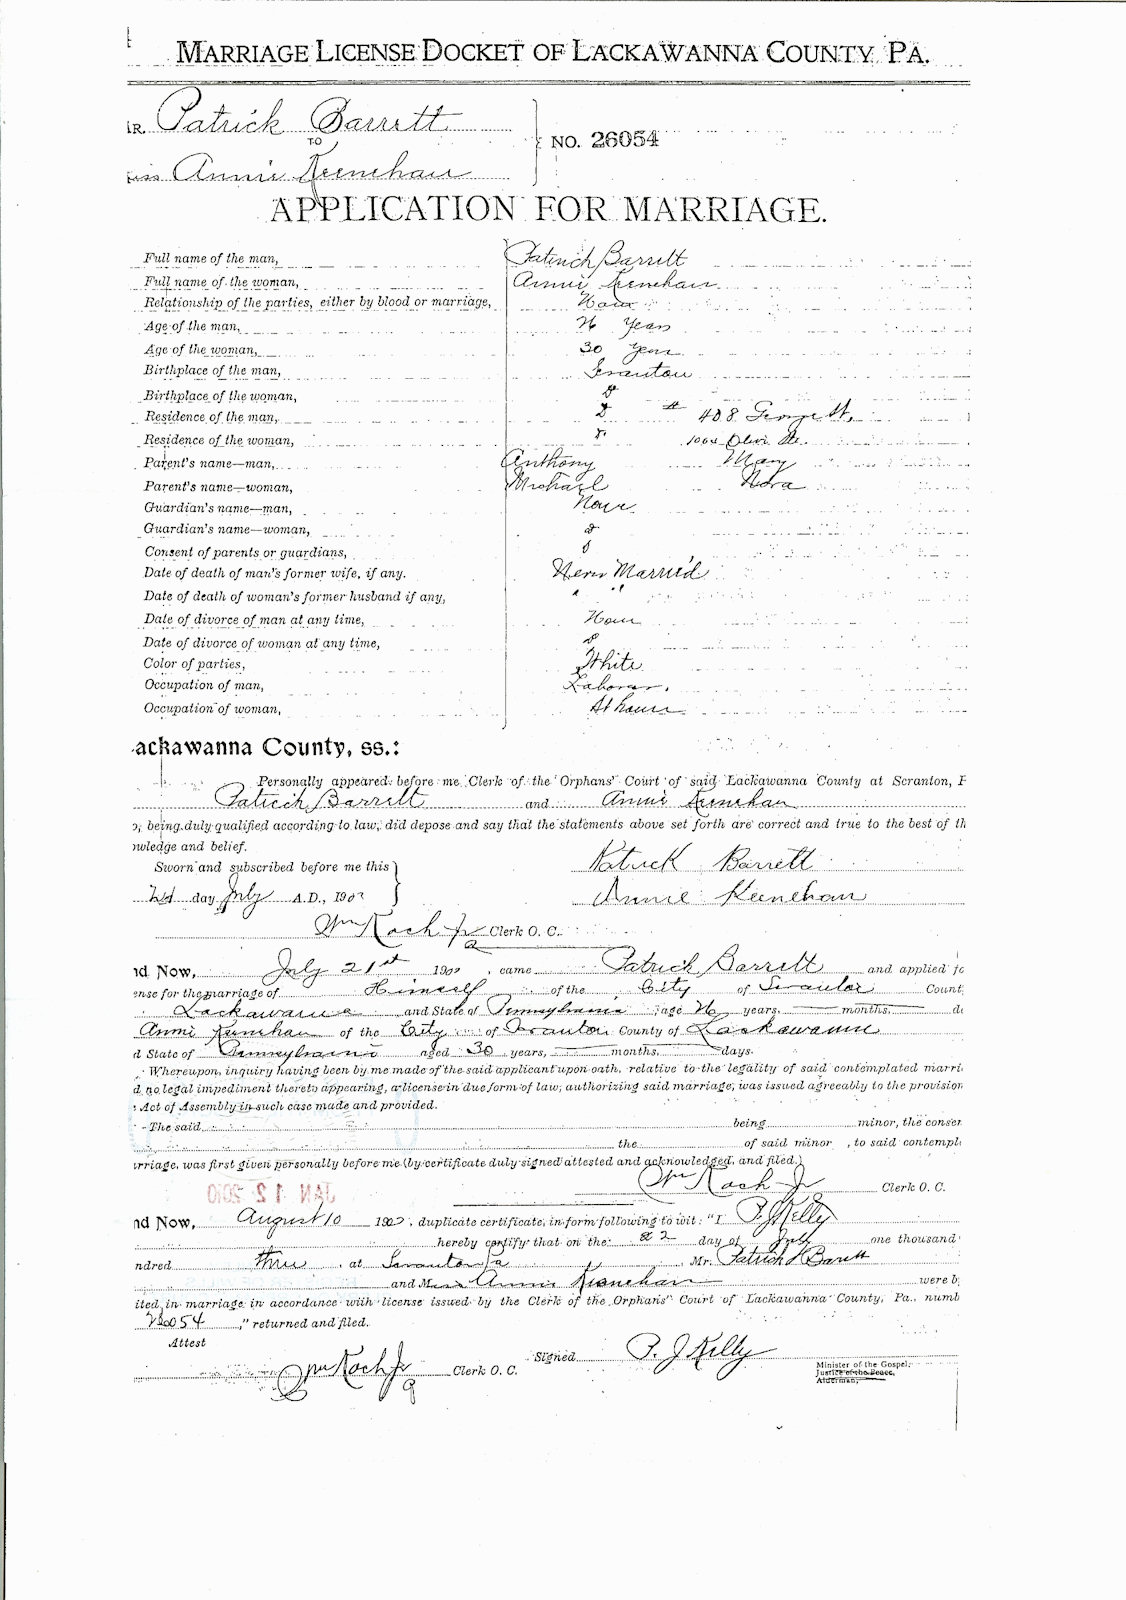 MARRIAGE LICENSE DOCKET OF LACKAWANNA COUNTY PA.
R. Patrick Barrett
TO
NO. 26054
iss Annie Keenehan
APPLICATION FOR MARRIAGE.
Full name of the man, Patrick Barrett
Full name of the woman, Annie Keenehan
Relationship of the parties, either by blood or marriage, None
Age of the man, 26 Years
Age of the woman, 30 Years
Birthplace of the man, Scranton
Birthplace of the woman,
Residence of the man, 408 George St,
Residence of the woman, Olive St.
Parent's name—man, Anthony Mary
Parent's name—woman, Michael Nora
Guardian's name—man, None
Guardian's name—woman,
Consent of parents or guardians,
Date of death of man's former wife, if any. Never Married
Date of death of woman's former husband if any, " "
Date of divorce of man at any time, None
Date of divorce of woman at any time,
Color of parties, White
Occupation of man, Laborer.
Occupation of woman, At home
ackawanna County, ss.:
Personally appeared before me Clerk of the Orphans' Court of said Lackawanna County at Scranton, P
Patrick Barrett and Annie Keenehan
o, being duly qualified according to law, did depose and say that the statements above set forth are correct and true to the best of th
owledge and belief.
Sworn and subscribed before me this
Patrick Barrett
day July A.D., 190
Annie Keenehan
Wm Koch Jr Clerk O. C.
nd Now, July 21st 190 , came Patrick Barrett and applied fo
ense for the marriage of Himself of the City of Scranton Count
Lackawanna and State of Pennsylvania age 26 years, months, d
Annie Keenehan of the City of Scranton County of Lackawanna
d State of Pennsylvania aged 30 years, months, days.
Whereupon, inquiry having been by me made of the said applicant upon oath, relative to the legality of said contemplated marri
d no legal impediment thereto appearing, a license in due form of law, authorizing said marriage, was issued agreeably to the provision
Act of Assembly in such case made and provided.
The said being minor, the conser
the of said minor , to said contempl
rriage, was first given personally before me (by certificate duly signed attested and acknowledged, and filed.)
Wm Koch Jr Clerk O. C.
JAN 12 2010
nd Now, August 10 190 , duplicate certificate, in form following to wit: "I P. J Kelly
hereby certify that on the 22 day of July one thousand
ndred three , at Scranton Pa , Mr. Patrick J Barrett
and Miss Annie Keenehan were b
ited in marriage in accordance with license issued by the Clerk of the Orphans' Court of Lackawanna County, Pa., numb
26054 ," returned and filed.
Attest
Signed P. J Kelly
Wm Koch Jr Clerk O. C.
Minister of the Gospel,
Justice of the Peace,
Alderman,